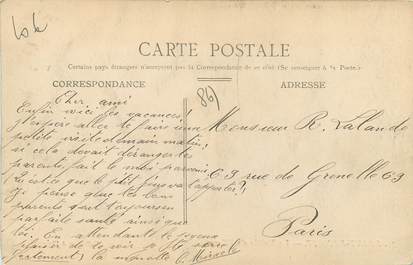 CARTE POSTALE
Certains pays étrangers n'acceptent pas la Correspondance de ce côté (Se renseigner à la Poste.)
CORRESPONDANCE
ADRESSE
861
Cher ami
Enfin voici les vacances!
J'espère aller te faire une
petite visite demain matin,
si cela devait déranger tes
parents, fait le moi
pense que tes bons
parents sont toujours en
parfaite santé ainsi que
toi. En attendant le joyeux
plaisir de te voir je te serre
la
Monsieur R. Lalande
63 rue de Grenelle 63
Paris